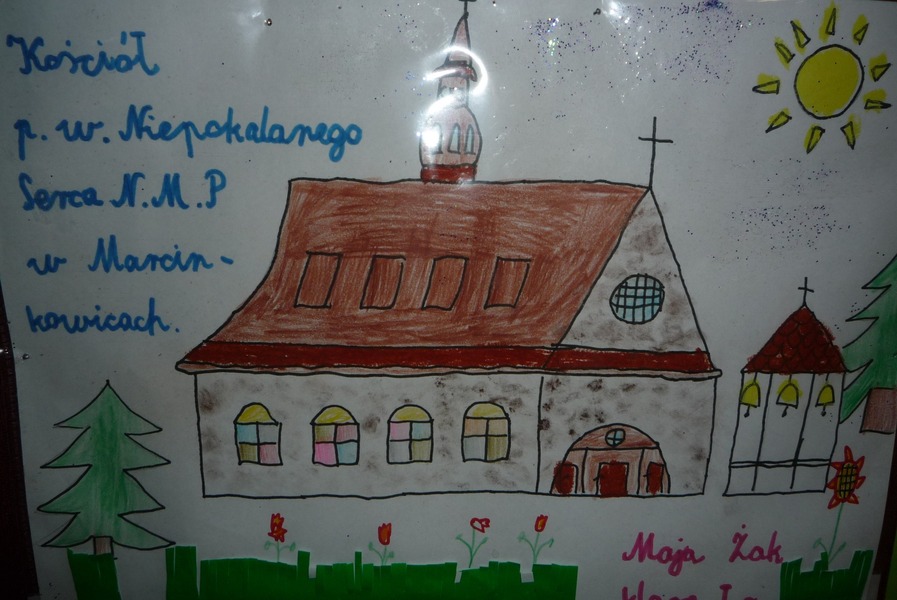 Kościół
p. w. Niepokalanego
Serca N.M.P
w Marcin-
kowicach.
Maja Żak
klasa I